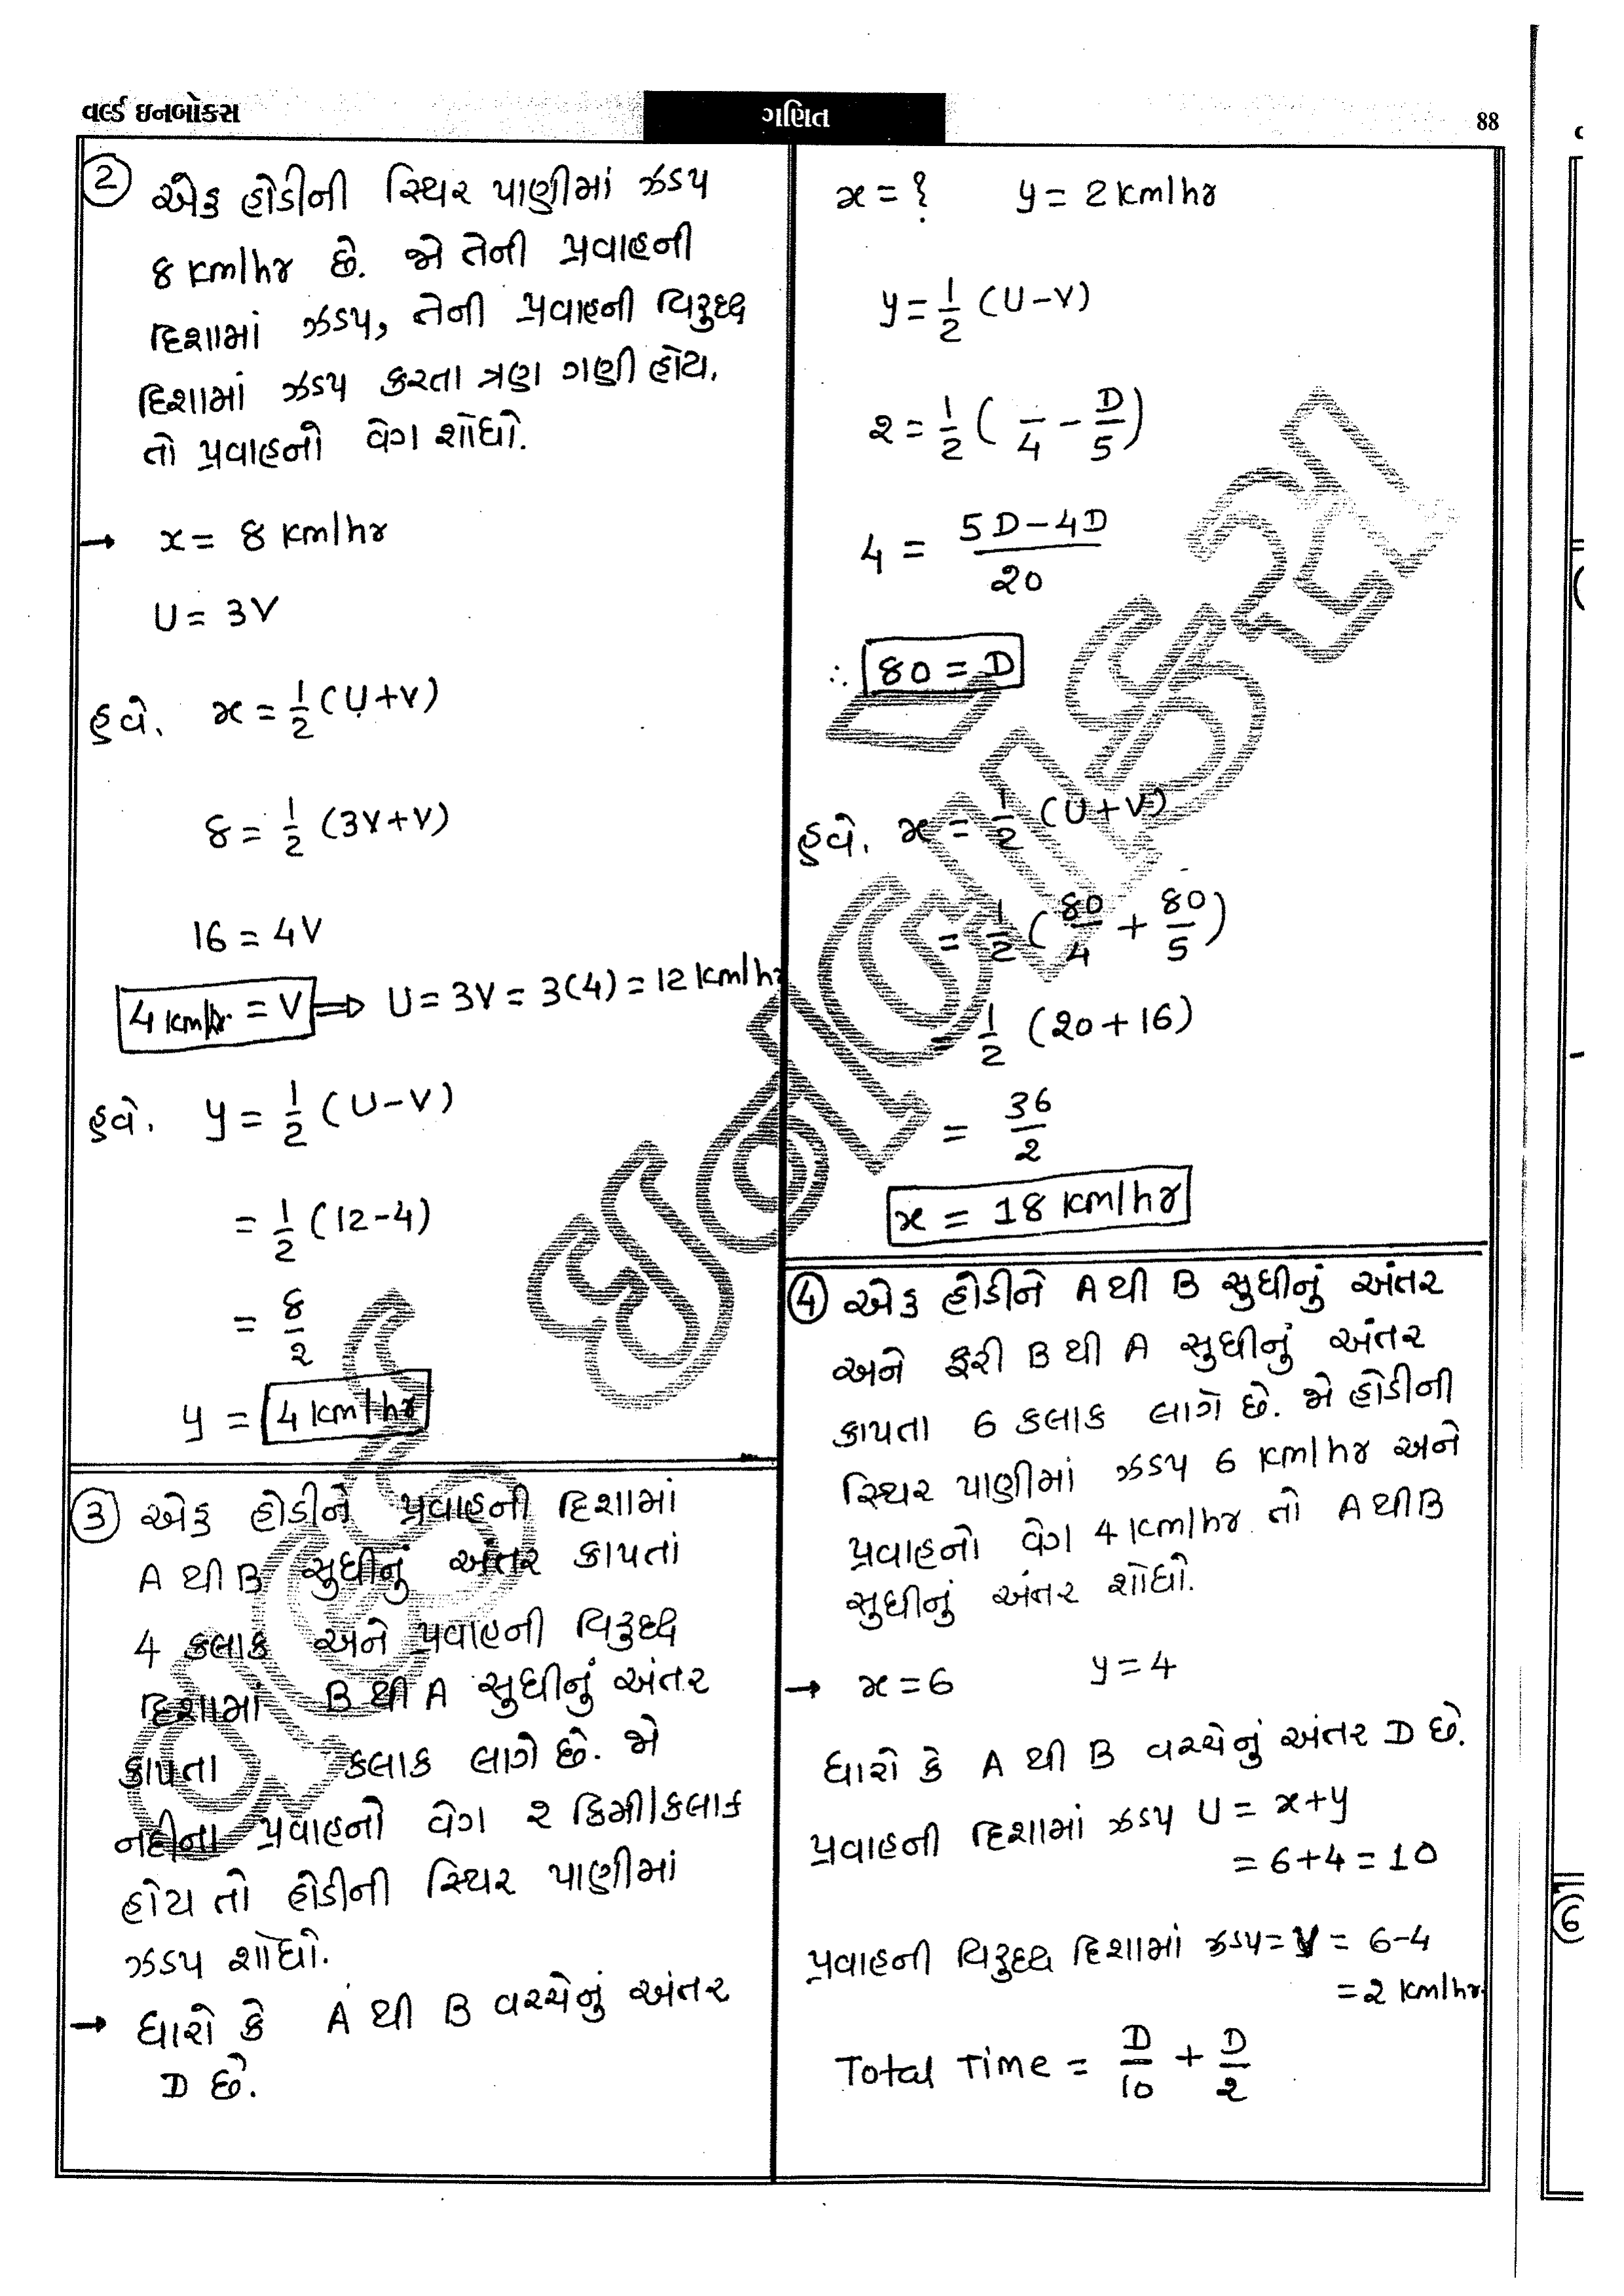 વર્લ્ડ ઇનબોક્સ
ગણિત
88
2 એક હોડીની સ્થિર પાણીમાં ઝડપ
8 km/hr છે. જો તેની પ્રવાહની
દિશામાં ઝડપ, તેની પ્રવાહની વિરુદ્ધ
દિશામાં ઝડપ કરતા ત્રણ ગણી હોય,
તો પ્રવાહનો વેગ શોધો.
→ x = 8 km/hr
U = 3V
હવે, x = 1/2 (U+V)
8 = 1/2 (3V+V)
16 = 4V
4 km/hr = V ⇒ U = 3V = 3(4) = 12 km/hr
હવે, y = 1/2 (U-V)
= 1/2 (12-4)
= 8/2
y = 4 km/hr
3 એક હોડીને પ્રવાહની દિશામાં
A થી B સુધીનું અંતર કાપતાં
4 કલાક અને પ્રવાહની વિરુદ્ધ
દિશામાં B થી A સુધીનું અંતર
કાપતા કલાક લાગે છે. જો
નદીના પ્રવાહનો વેગ ૨ કિમી/કલાક
હોય તો હોડીની સ્થિર પાણીમાં
ઝડપ શોધો.
→ ધારો કે A થી B વચ્ચેનું અંતર
D છે.
x = ? y = 2 km/hr
y = 1/2 (U-V)
૨ = 1/2 ( /4 - D/5)
4 = 5D-4D/૨0
∴ 80 = D
હવે, x = 1/2 (U+V)
= 1/2 (80/4 + 80/5)
= 1/2 (૨0+16)
= 36/2
x = 18 km/hr
4 એક હોડીને A થી B સુધીનું અંતર
અને ફરી B થી A સુધીનું અંતર
કાપતા 6 કલાક લાગે છે. જો હોડીની
સ્થિર પાણીમાં ઝડપ 6 km/hr અને
પ્રવાહનો વેગ 4 km/hr તો A થી B
સુધીનું અંતર શોધો.
→ x = 6 y = 4
ધારો કે A થી B વચ્ચેનું અંતર D છે.
પ્રવાહની દિશામાં ઝડપ U = x+y
= 6+4 = 10
પ્રવાહની વિરુદ્ધ દિશામાં ઝડપ = V = 6-4
= ૨ km/hr.
Total Time = D/10 + D/૨
6